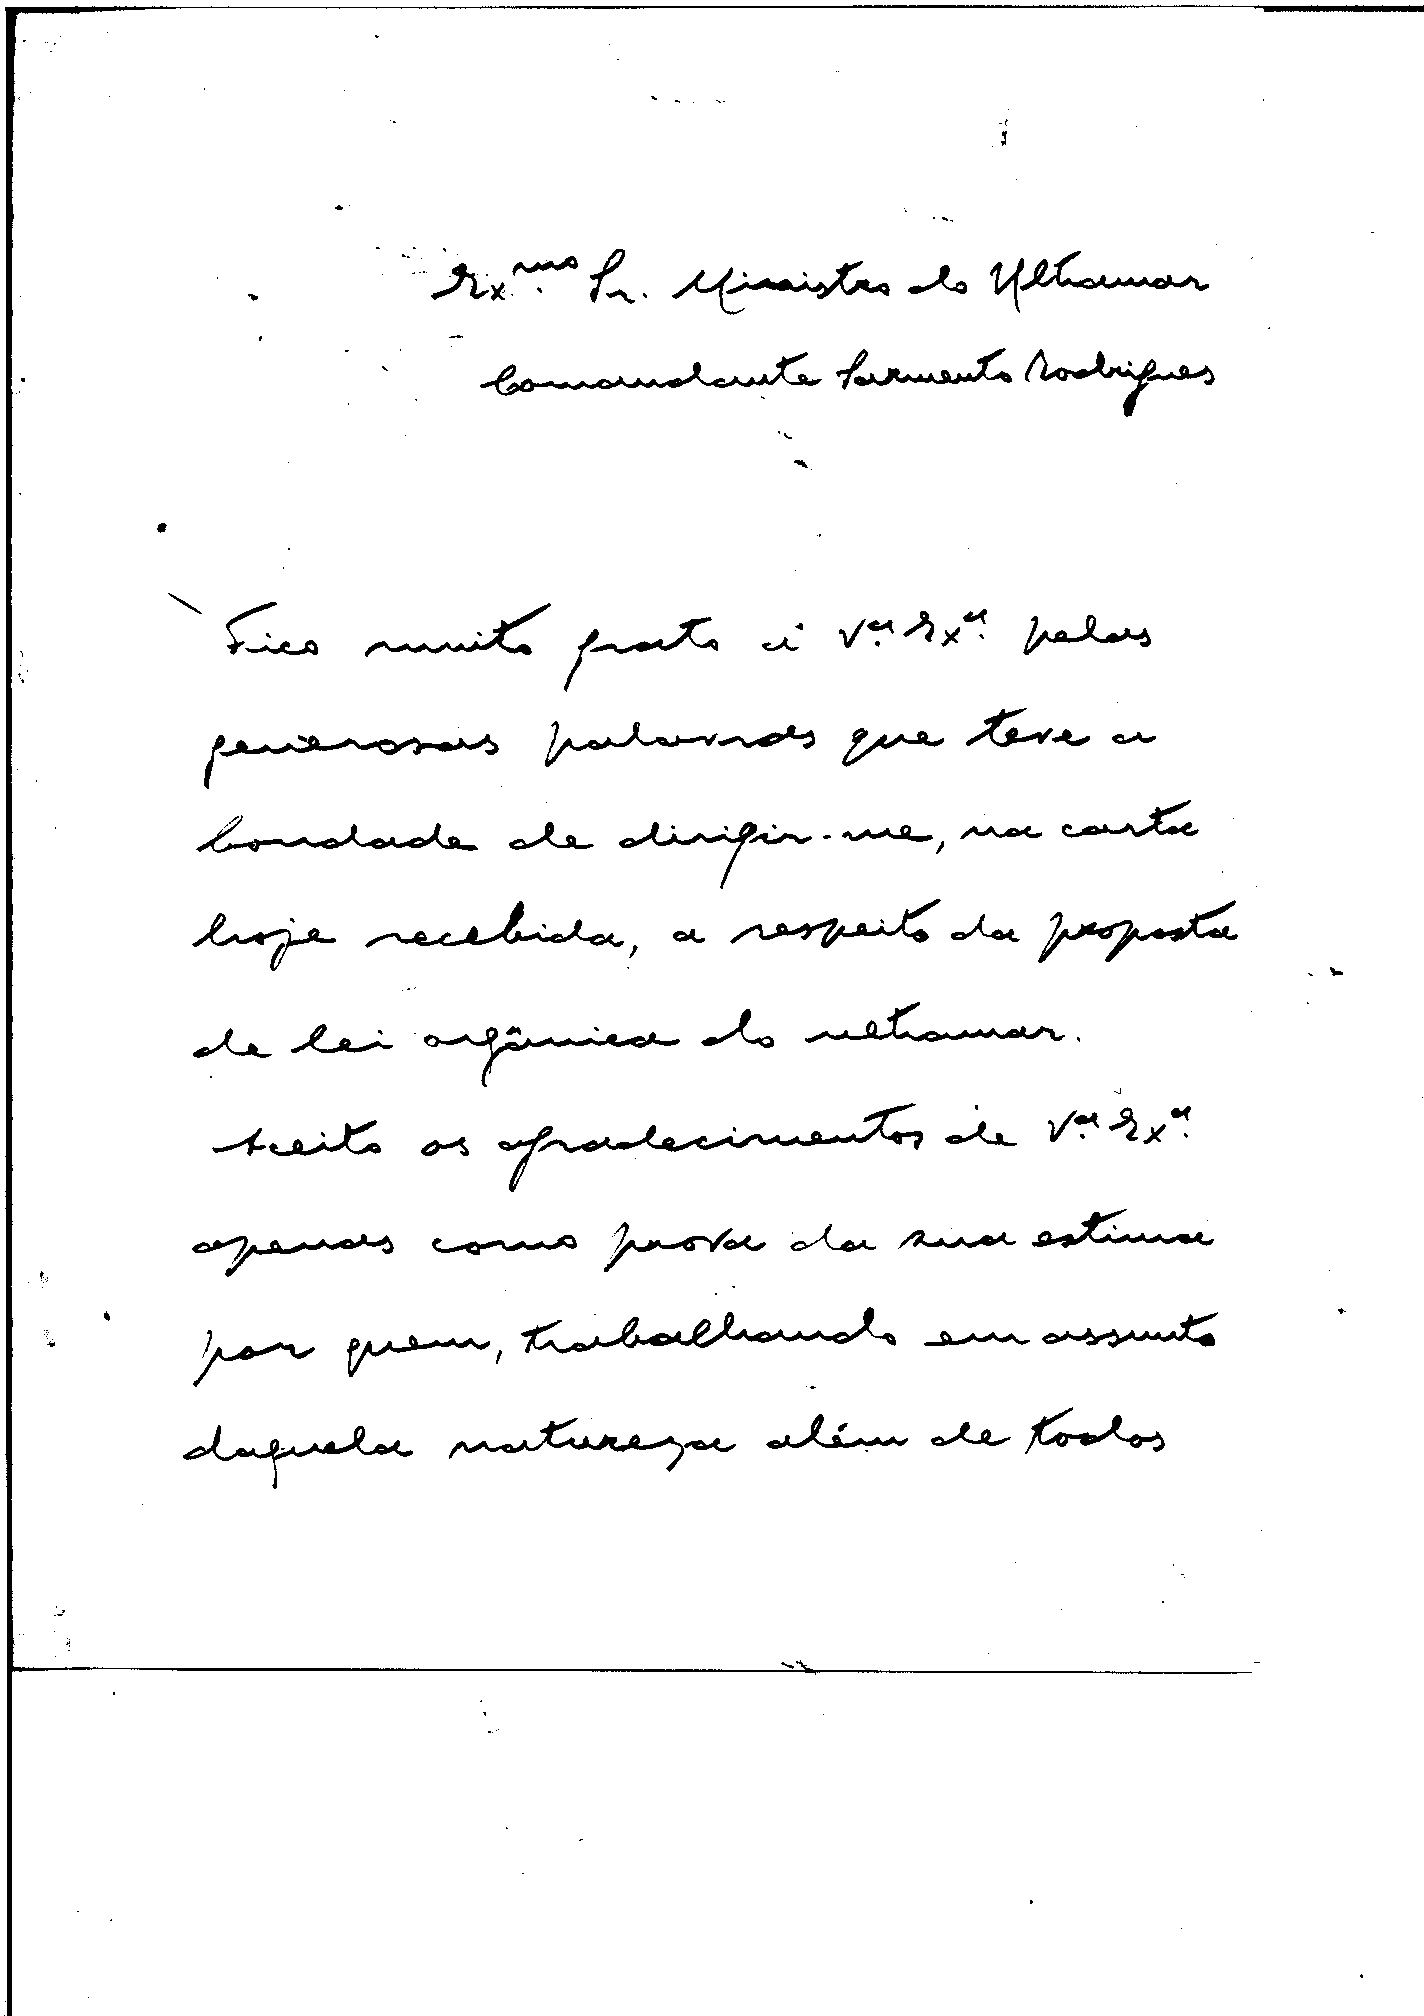 Ex.mo Sr. Ministro do Ultramar
Comandante Sarmento Rodrigues
Fico muito grato a V.a Ex.a pelas
generosas palavras que teve a
bondade de dirigir-me, na carta
hoje recebida, a respeito da proposta
de lei orgânica do ultramar.
Aceito os agradecimentos de V.a Ex.a
apenas como prova da sua estima
por quem, trabalhando em assunto
daquela natureza além de todos